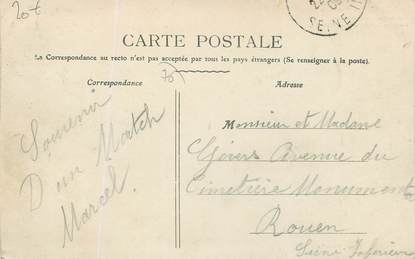 20€
CARTE POSTALE
La Correspondance au recto n'est pas acceptée par tous les pays étrangers (Se renseigner à la poste).
Correspondance
Adresse
76
Souvenir
D'un Match
Marcel.
Monsieur et Madame
Avenue du
Cimetière Monumental
Rouen
Seine Inférieure
SEINE